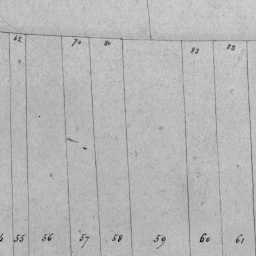 70 80 82 83
55 56 57 58 59 60 61